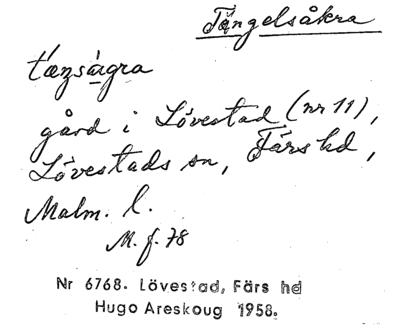 Tängelsåkra
tæŋsågra
gård i Lövestad (nr 11),
Lövestads sn, Färs hd,
Malm. l.
M. f. 78
Nr 6768. Lövestad, Färs hd
Hugo Areskoug 1958.